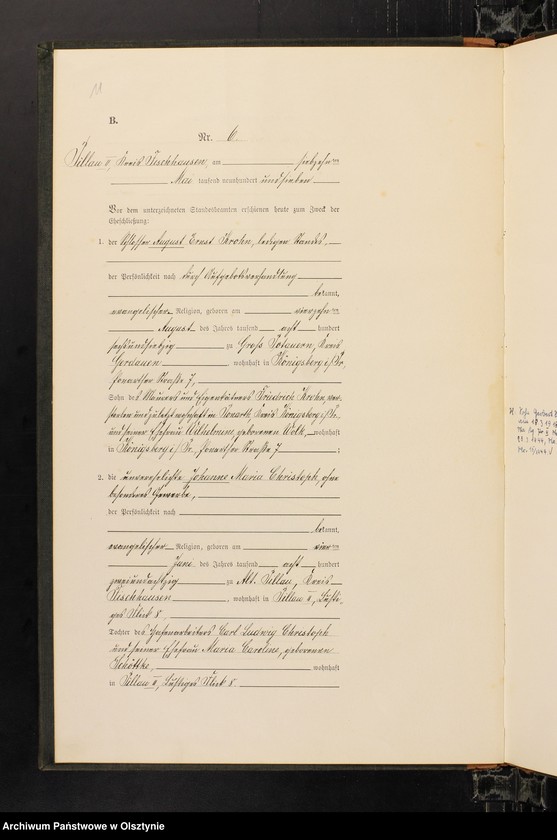 B.
Nr. 6.
Pillau II, Kreis Fischhausen, am siebzehn ten
Mai tausend neunhundert und sieben
Vor dem unterzeichneten Standesbeamten erschienen heute zum Zweck der
Eheschließung:
1. der Schlosser August Ernst Krohn, ledigen Standes,
der Persönlichkeit nach durch Aufgebotsverhandlung
bekannt,
evangelischer Religion, geboren am vierzehn ten
August des Jahres tausend acht hundert
sechsundsiebzig zu Groß Potauern, Kreis
Gerdauen, wohnhaft in Königsberg i/Pr.
Ponarther Straße 7,
Sohn des Maurers und Eigentümers Friedrich Krohn, ver-
storben und zuletzt wohnhaft in Ponarth, Kreis Königsberg i/Pr.
und seiner Ehefrau Wilhelmine, geborenen Wolk, wohnhaft
in Königsberg i/Pr. Ponarther Straße 7;
2. die unverehelichte Johanne Maria Christoph, ohne
besonderes Gewerbe,
der Persönlichkeit nach
bekannt,
evangelischer Religion, geboren am vier ten
Juni des Jahres tausend acht hundert
zweiundachtzig zu Alt Pillau, Kreis
Fischhausen, wohnhaft in Pillau II, Lusti-
ges Fleck 8,
Tochter des Hafenarbeiters Carl Ludwig Christoph
und seiner Ehefrau Maria Caroline, geborenen
Schöttke, wohnhaft
in Pillau II, Lustiges Fleck 8.
Archiwum Państwowe w Olsztynie